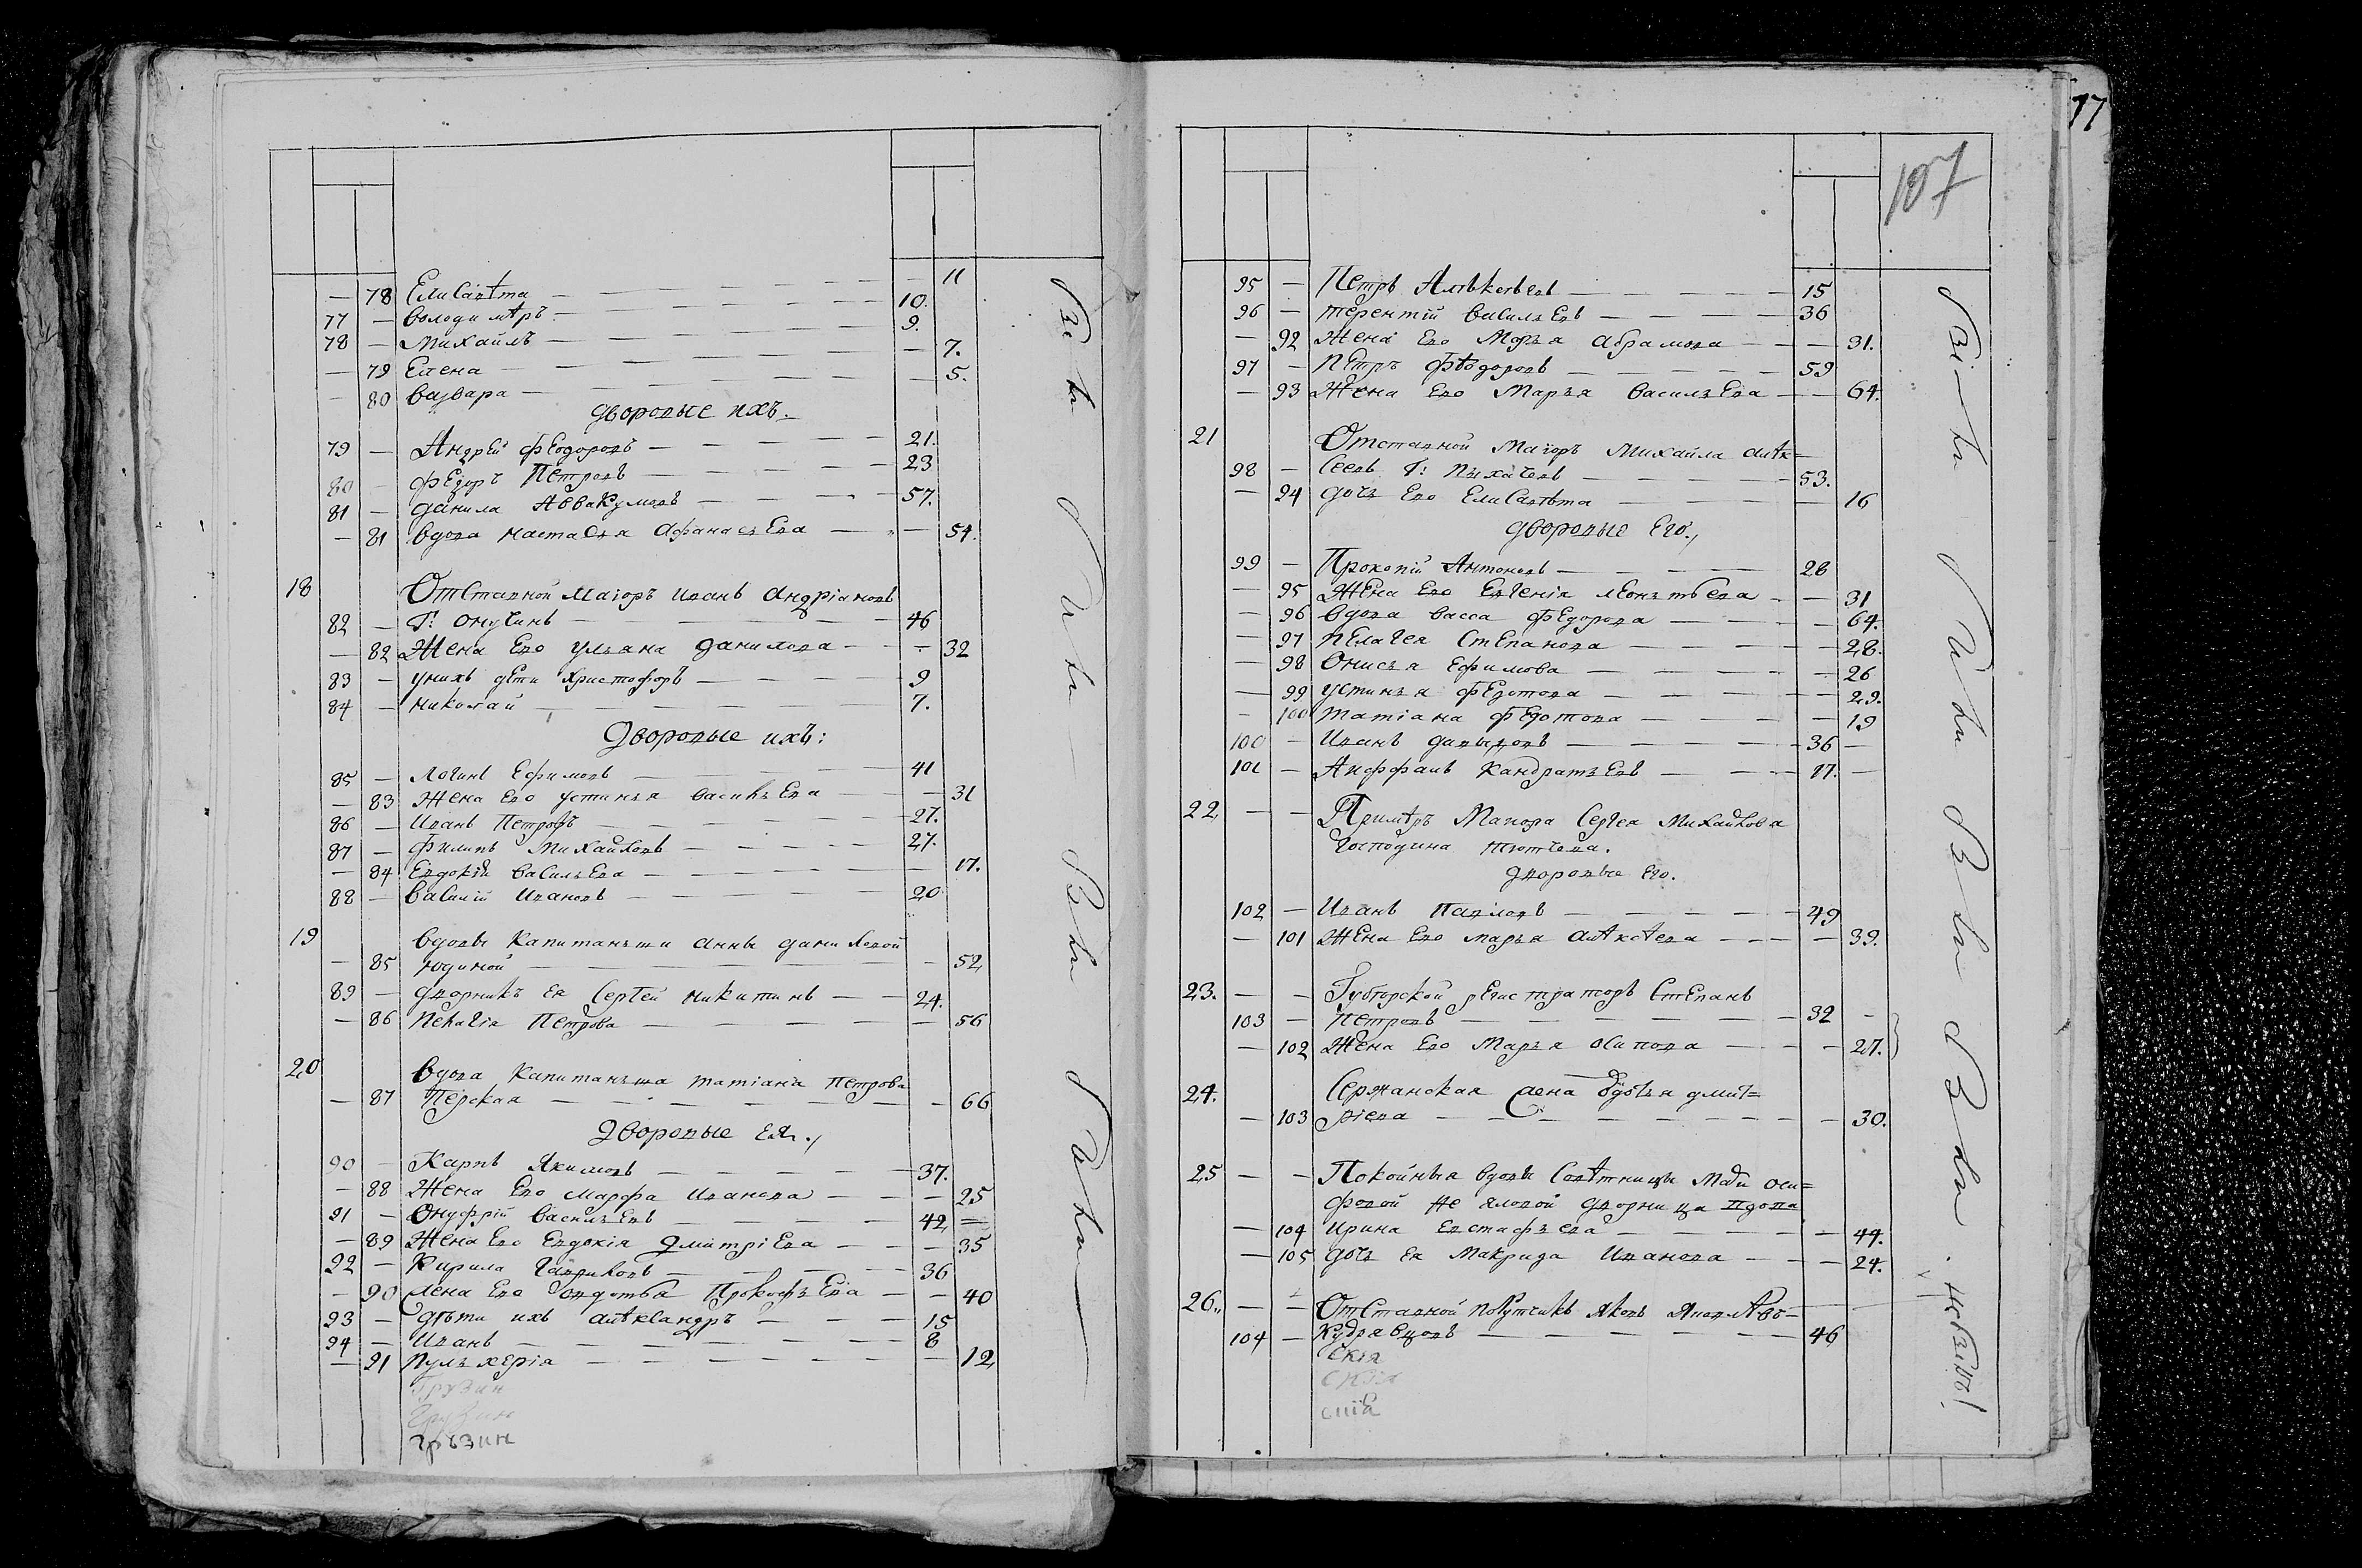 — 78 Елисавѣта — — — — — 11
77 — Володимѣръ — — — — 10.
78 — Михайлъ — — — — 9.
— 79 Елена — — — — — 7.
— 80 Варвара — — — — — 5.
дворовые ихъ.
79 — Андрей Феодоровъ — — — — 21.
80 — Федоръ Петровъ — — — — 23
81 — Данила Аввакумовъ — — — 57.
— 81 Вдова Настасья Афанасьева — — 54.
18 Отставной Маіоръ Иванъ Андріановъ
82 — Г: Онучинъ — — — — 46
— 82 Жена Ево Ульяна Данилова — — — 32
83 — у нихъ дети Христофоръ — — — — 9
84 — Николай — — — — 7.
Дворовые ихъ:
85 — Логинъ Ефимовъ — — — 41
— 83 Жена Ево Устинья Васильева — — 31
86 — Иванъ Петровъ — — — — 27.
87 — Филипъ Михайловъ — — — — 27.
— 84 Евдокія Васильева — — — — 17.
88 — Василій Ивановъ — — — — 20
19 Вдовы Капитанъши Анны Даниловой
— 85 Юдиной — — — — — 52
89 — Дворникъ Ея Сергей Никитинъ — — 24.
— 86 Пелагія Петрова — — — — 56
20 Вдова Капитанъша Татіана Петрова
— 87 Перская — — — — — — 66
Дворовые Ея.,
90 — Карпъ Якимовъ — — — — 37.
— 88 Жена Ево Марфа Иванова — — — 25
91 — Онуфрій Васильевъ — — — — 42 =
— 89 Жена Ево Евдокія Дмитріева — — — 35
92 — Кирила Гавриловъ — — — — 36
— 90 Жена Ево Прокофьева — — 40
93 — Дѣти ихъ Алѣксандръ — — — 15
94 — Иванъ — — — — — 8
— 91 Пульхерія — — — — — — 12
Грузин
Грузин
Грузин
17
107
95 — Петръ — — — — 15
96 — Терентій Васильевъ — — — — 36
— 92 Жена Ево Марья Абрамова — — — 31.
97 — Петръ Фѣодоровъ — — — — 59
— 93 Жена Ево Марья Васильева — — — 64.
21 Отставной Маіоръ Михайла Алѣк=
98 — Сеевъ Г: Пыхачевъ — — — — 53.
— 94 дочь Ево Елисавѣта — — — — 16
дворовые Его.,
99 — Прокопій Антоновъ — — — — 28
— 95 Жена Ево Евгенія Леонътьева — — 31
— 96 Вдова Васса Федорова — — — — 64.
— 97 Пелагея Степанова — — — — 28.
— 98 Онисья Ефимова — — — — 26
— 99 Устинья Федотова — — — — 29.
— 100 Татіана Федотова — — — — 19
100 — Иванъ Давыдовъ — — — — 36 —
101 — Кандратьевъ — — — 17. —
22 — — Примѣръ Маиора Сергея Михайлова
Господина Тютчева.
Дворовые Его.
102 — Иванъ Павловъ — — — — 49
— 101 Жена Ево Марья Алѣксѣева — — — 39.
23. — — регистраторъ Степанъ
103 — Петровъ — — — — — 32 —
— 102 Жена Ево Марья Осипова — — — 27.
24. Сержанская жена Дмит=
— 103 ріева — — — — — — 30.
25 — — Покойныя вдовы Совѣтницы
дворница вдова
— 104 Ирина Евстафьева — — — — 44.
— 105 дочь Ея Макрида Иванова — — — 24.
26.. — — Отставной Яковъ
104 — Кудрявцовъ — — — — — 46
скія